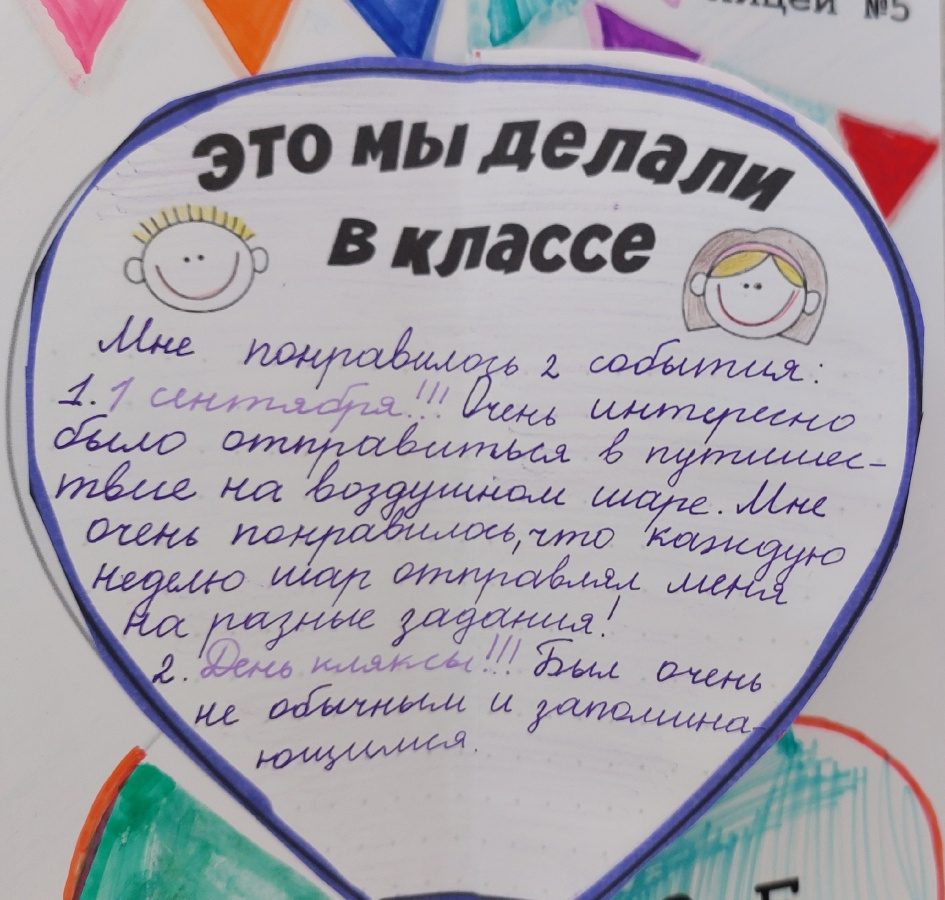 лицей №5
это мы делали
в классе
Мне понравилось 2 события:
1. 1 сентября!!! Очень интересно
было отправиться в путишес-
твие на воздушном шаре. Мне
очень понравилось, что каждую
неделю шар отправлял меня
на разные задания!
2. День кляксы!!! Был очень
не обычным и запомина-
ющимся.